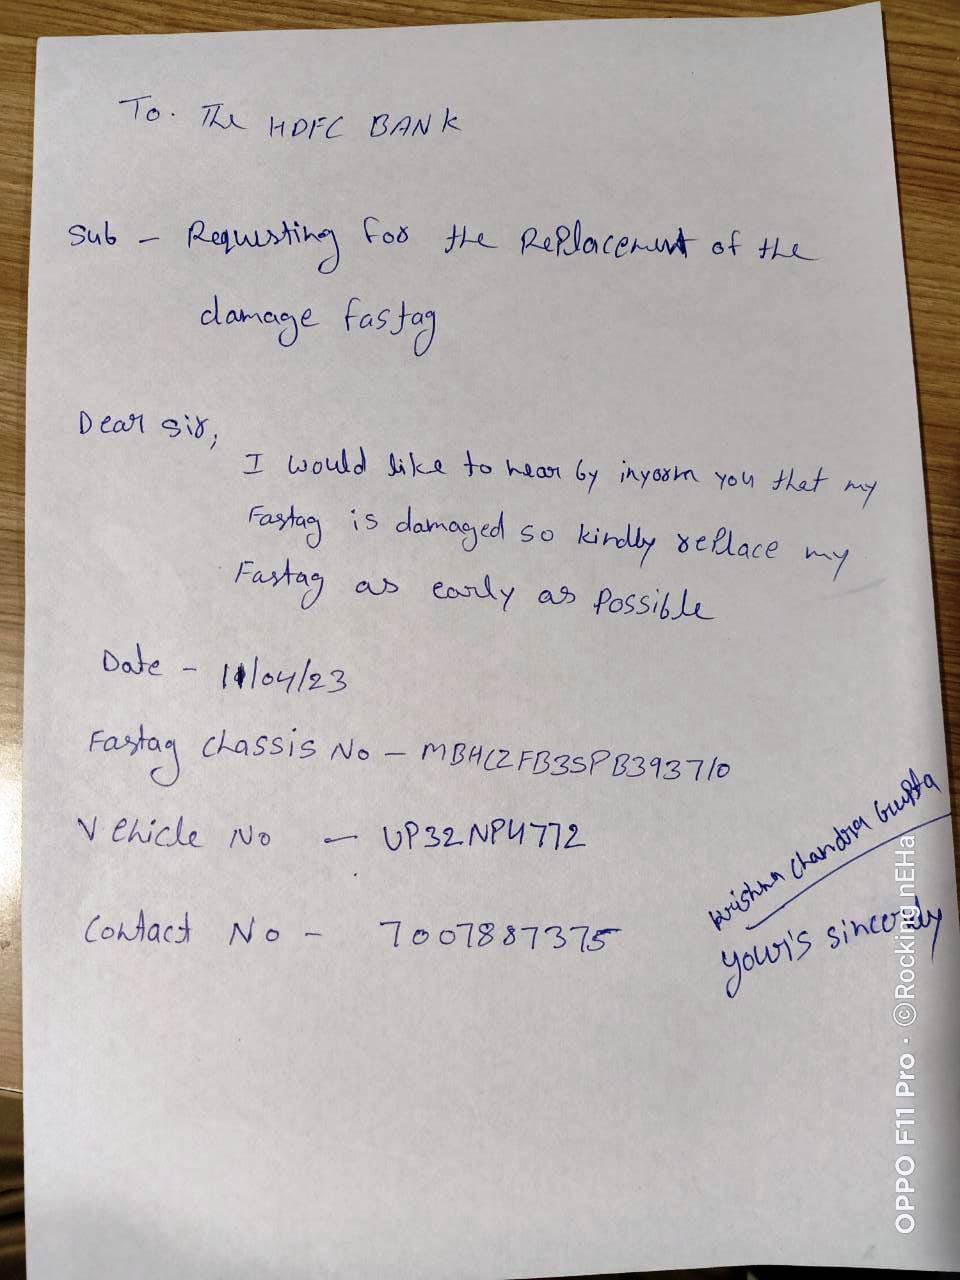 To. The HDFC BANK
Sub - Requesting for the Replacement of the
damage fastag
Dear sir,
I would like to hear by inyorm you that my
Fastag is damaged so kindly replace my
Fastag as early as Possible
Date - 11/04/23
Fastag Chassis No - MBHCZFB3SPB393710
Vehicle No - UP32NP4772
Contact No - 7007887375
Krishna Chandra Gupta
your's sincerly
OPPO F11 Pro · ©Rocking nEHa